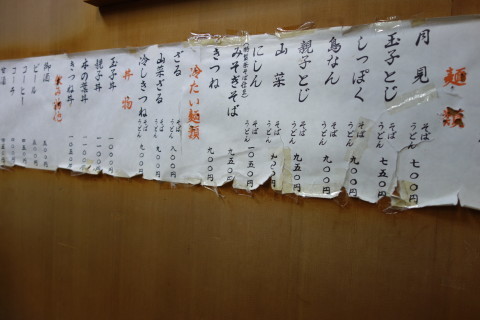 麺類
月見 そば うどん 七〇〇円
玉子とじ そば うどん 七五〇円
しっぽく そば うどん 九〇〇円
鳥なん そば うどん 九〇〇円
親子とじ そば うどん 九五〇円
山菜 そば うどん 九〇〇円
にしん そば うどん 一〇五〇円
みそきそば 九五〇円
きつね 九〇〇円
冷たい麺類
ざる そば うどん 八〇〇円
山菜ざる そば うどん 九〇〇円
冷しきつね そば うどん 九〇〇円
丼物
玉子丼 一〇〇〇円
親子丼 一一〇〇円
木の葉丼
きつね丼
御酒
ビール
コーヒー
コーラ